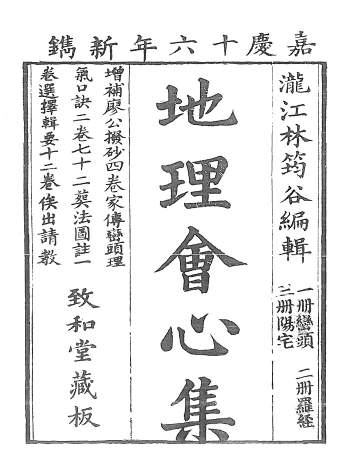 嘉慶十六年新鐫
瀧江林筠谷編輯
一册巒頭
二册羅經
三册陽宅
地理會心集
增補廖公撥砂四卷家傳巒頭理
氣口訣二卷七十二葬法圖註一
卷選擇輯要十二卷俟出請教
致和堂藏板